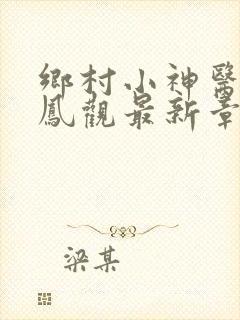 鄉村小神醫
鳳觀最新章
梁某